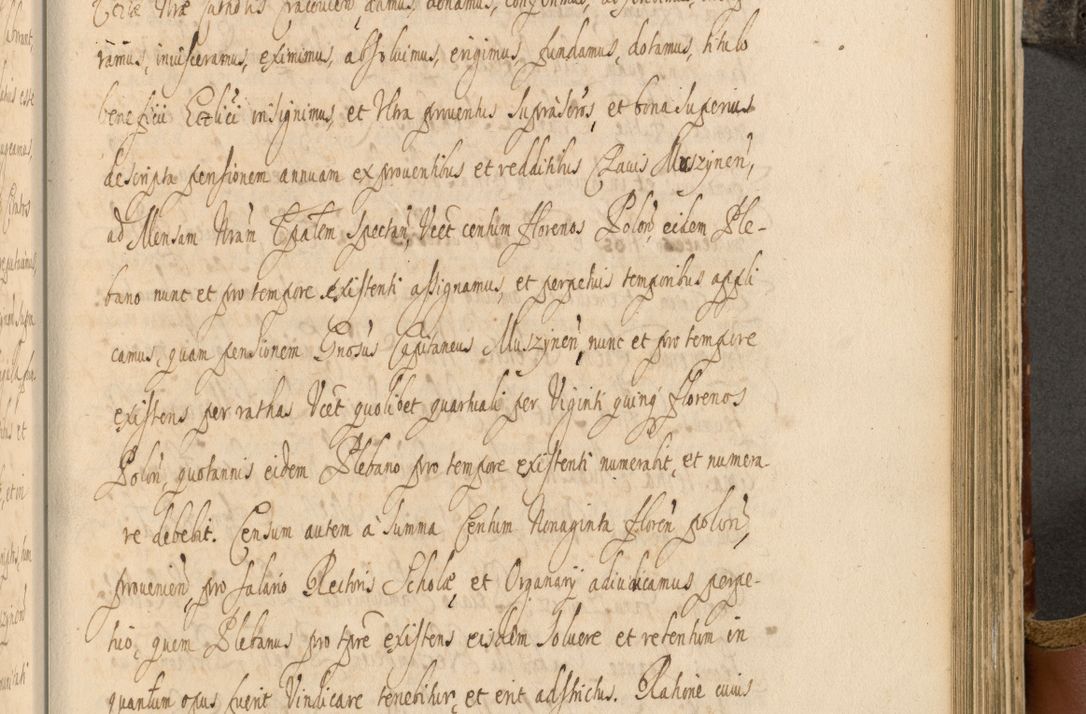 ramus, inuisceramus, eximimus, absoluimus, erigimus, fundamus, dotamus, titulo
beneficii Eccl̃ici insignimus, et Ultra prouentus supraśċros, et bona superius
descripta pensionem annuam ex prouentibus et redditibus Clauis Muszynen̄,
ad Mensam Nr̃am Ep̃alem spectan̄, Vcet centum florenos Polon̄, eidem Ple-
bano nunc et pro tempore existenti assignamus, et perpetuis temporibus appli
camus, quam pensionem Gnosus Capitaneus Muszynen̄, nunc et pro tempore
existens per rathas Vcet quolibet quartuali per Viginti quinq florenos
Polon̄, quotannis eidem Plebano pro tempore existenti numerabit, et numera-
re debebit. Censum autem a summa Centum Nonaginta floren̄ polon̄,
prouenien̄, pro salario Rectoris Scholæ, et Organarij adiudicamus perpe-
tuo, quem Plebanus pro tp̃re existens eisdem soluere et retentum in
quantum opus fuerit Vindicare tenebitur, et erit adstrictus. Ratione cuius